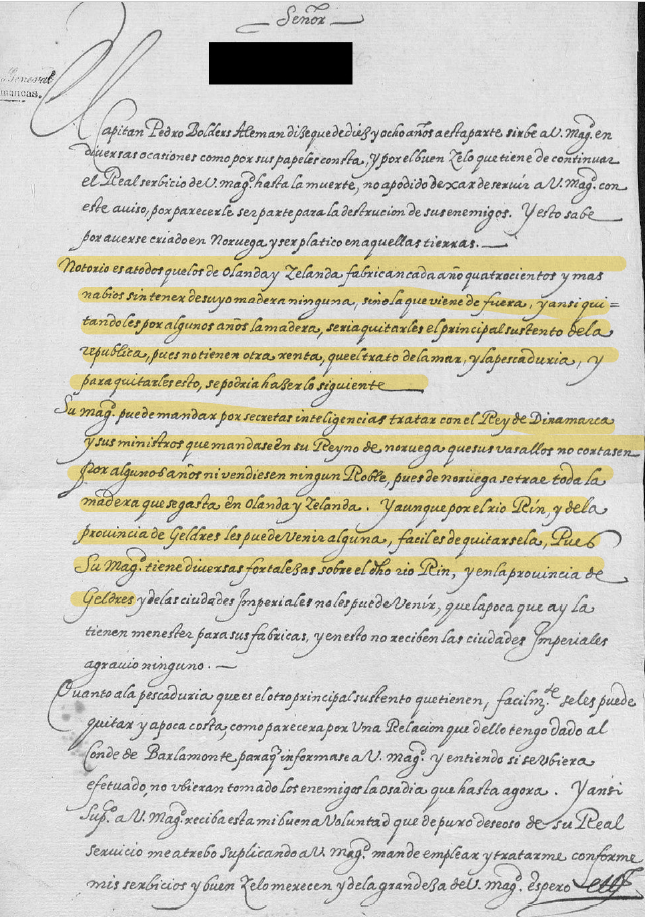 Señor
General
mancas.
El Capitan Pedro Bolders Aleman dize que de diez y ocho años a esta parte sirbe a V. Magd. en
diversas ocasiones como por sus papeles consta, y por el buen zelo que tiene de continuar
el Real serbicio de V. magd. hasta la muerte, no a podido dexar de servir a V. Magd. con
este aviso, por parecerle ser parte para la destrucion de sus enemigos. Y esto sabe
por averse criado en Noruega y ser platico en aquellas tierras. —
Notorio es a todos que los de Olanda y Zelanda fabrican cada año quatrocientos y mas
nabios sin tener de suyo madera ninguna, sino la que viene de fuera, y ansi qui=
tandoles por algunos años la madera, seria quitarles el principal sustento de la
republica, pues no tienen otra renta, que el trato de la mar, y la pescaduria, y
para quitarles esto, se podria hazer lo siguiente
Su magd. puede mandar por secretas inteligencias tratar con el Rey de Dinamarca
y sus ministros que mandase en su Reyno de noruega que sus vasallos no cortasen
por algunos años ni vendiesen ningun Roble, pues de noruega se trae toda la
madera que se gasta en Olanda y Zelanda. Y aunque por el rio Rin, y de la
provincia de Geldres les puede venir alguna, faciles de quitarsela, Pues
Su Magd. tiene diversas fortalezas sobre el dho rio Rin, y en la provincia de
Geldres y de las ciudades Imperiales no les puede venir, que la poca que ay la
tienen menester para sus fabricas, y en esto no reciben las ciudades Imperiales
agravio ninguno. —
Quanto a la pescaduria que es el otro principal sustento que tienen, facilmte. se les puede
quitar y a poca costa, como parecera por Una Relacion que dello tengo dado al
Conde de Barlamonte para q informase a V. Magd. y entiendo si se ubiera
efetuado, no ubieran tomado los enemigos la osadia que hasta agora. Y ansi
Supco. a V. Magd. reciba esta mi buena Voluntad que de puro deseoso de su Real
servicio me atrebo suplicando a V. Magd. mande emplear y tratarme conforme
mis serbicios y buen zelo merecen y de la grandeza de V. magd. espero